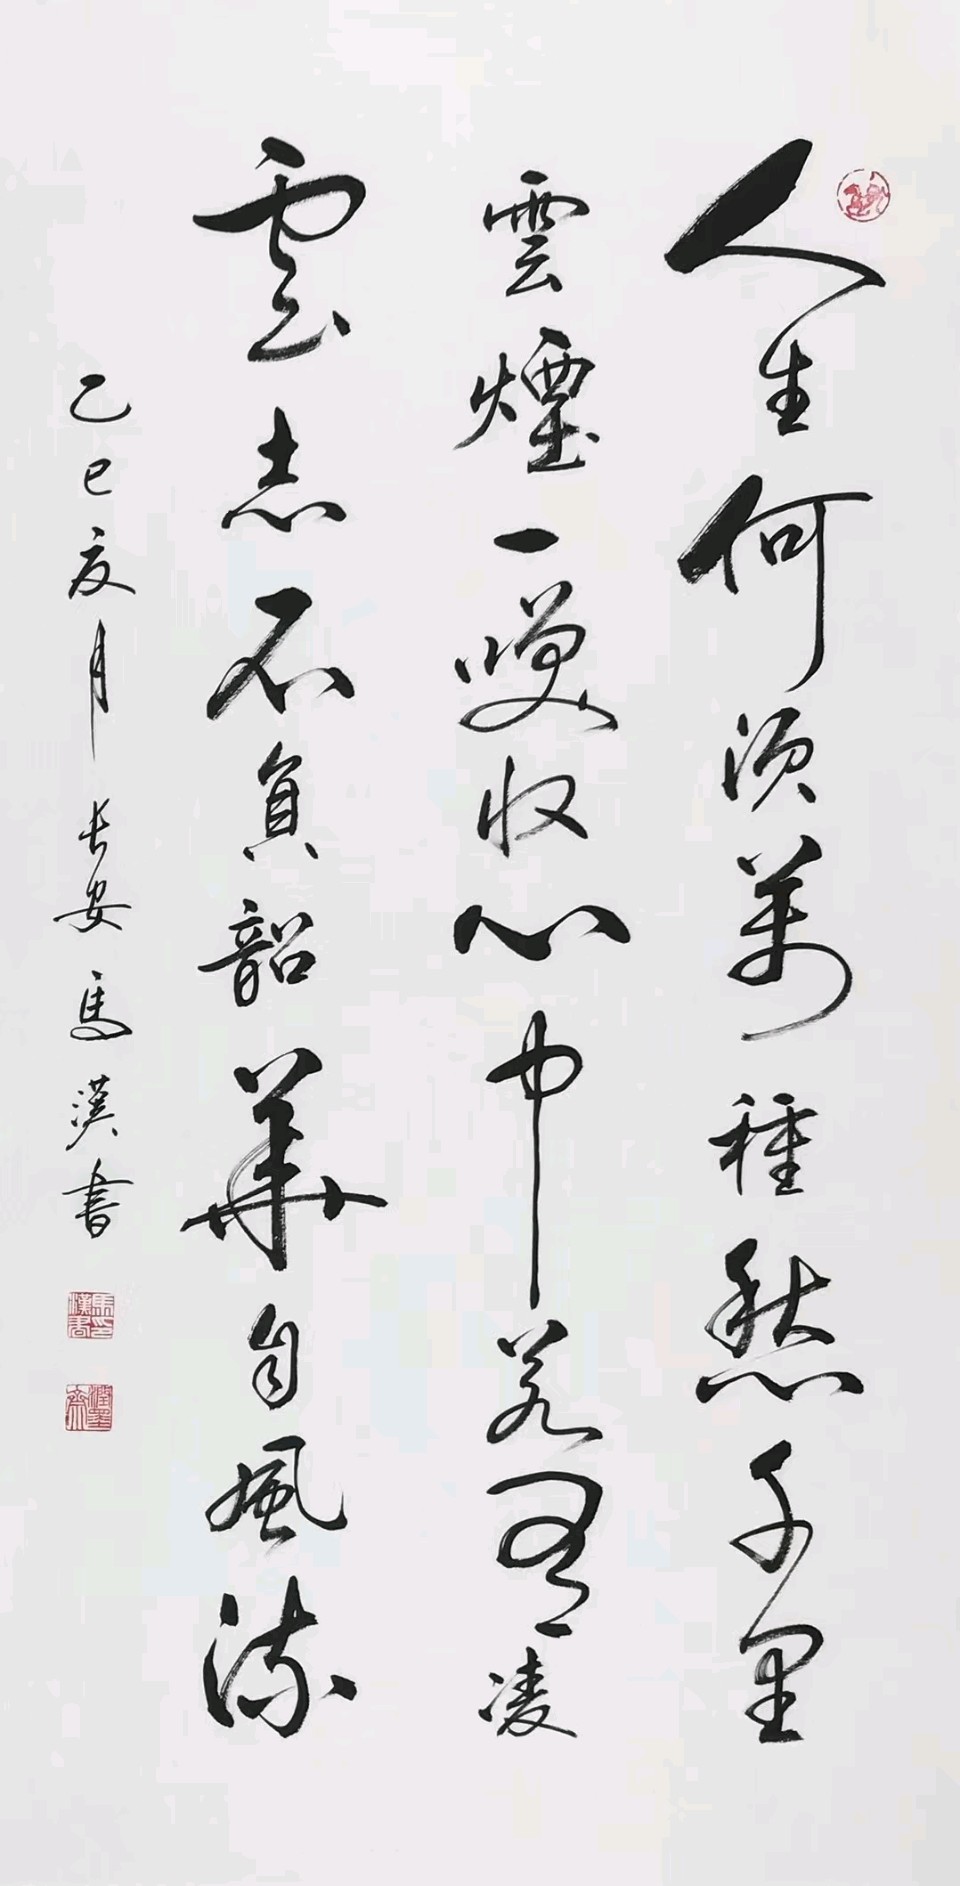 人生何須萬種愁千里
雲煙一嘆收心中若有凌
雲志不負韶華自風流
乙巳夏月長安馬漢書
馬漢書印
潤墨齋